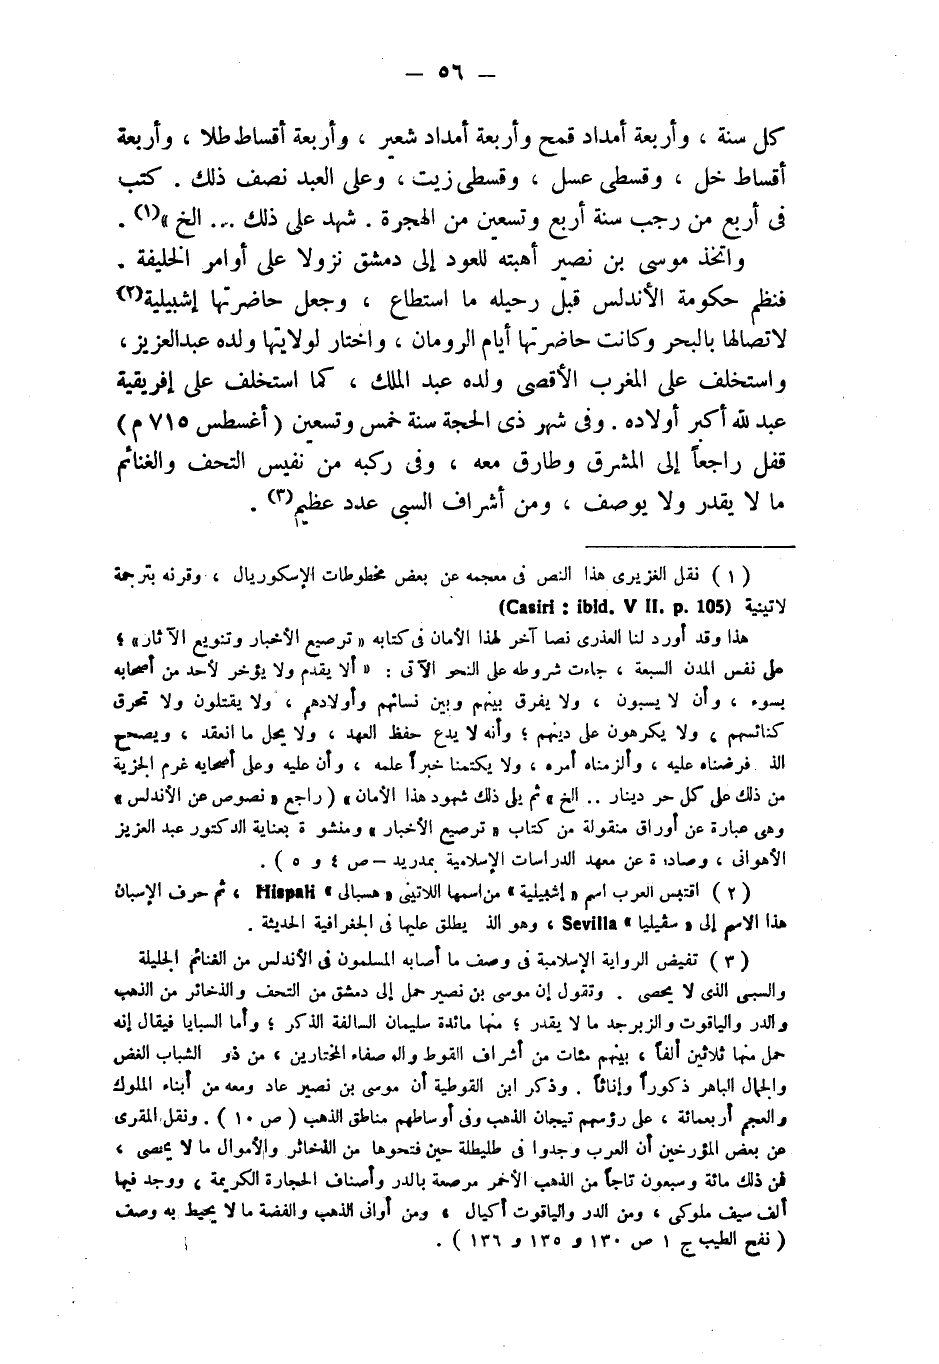 — ٥٦ —
كل سنة ، وأربعة أمداد قمح وأربعة أمداد شعير ، وأربعة أقساط طلا ، وأربعة
أقساط خل ، وقسطى عسل ، وقسطى زيت ، وعلى العبد نصف ذلك . كتب
فى أربع من رجب سنة أربع وتسعين من الهجرة . شهد على ذلك ... الخ »(١) .
واتخذ موسى بن نصير أهبته للعود إلى دمشق نزولا على أوامر الخليفة .
فنظم حكومة الأندلس قبل رحيله ما استطاع ، وجعل حاضرتها إشبيلية(٢)
لاتصالها بالبحر وكانت حاضرتها أيام الرومان ، واختار لولايتها ولده عبدالعزيز ،
واستخلف على المغرب الأقصى ولده عبد الملك ، كما استخلف على إفريقية
عبد لله أكبر أولاده . وفى شهر ذى الحجة سنة خمس وتسعين ( أغسطس ٧١٥ م )
قفل راجعاً إلى المشرق وطارق معه ، وفى ركبه من نفيس التحف والغنائم
ما لا يقدر ولا يوصف ، ومن أشراف السبى عدد عظيم(٣) .
( ١ ) نقل الغزيرى هذا النص فى معجمه عن بعض مخطوطات الإسكوريال ، وقرنه بترجمة
لاتينية (Casiri : ibid. V II. p. 105)
هذا وقد أورد لنا العذرى نصا آخر لهذا الأمان فى كتابه « ترصيع الأخبار وتنويع الآثار » ؛
على نفس المدن السبعة ، جاءت شروطه على النحو الآتى : « ألا يقدم ولا يؤخر لأحد من أصحابه
بسوء ، وأن لا يسبون ، ولا يفرق بينهم وبين نسائهم وأولادهم ، ولا يقتلون ولا تحرق
كنائسهم ، ولا يكرهون على دينهم ؛ وأنه لا يدع حفظ العهد ، ولا يحل ما انعقد ، ويصحح
الذ فرضناه عليه ، وألزمناه أمره ، ولا يكتمنا خبراً علمه ، وأن عليه وعلى أصحابه غرم الجزية
من ذلك على كل حر دينار .. الخ » ثم يلى ذلك شهود هذا الأمان » ( راجع « نصوص عن الأندلس »
وهى عبارة عن أوراق منقولة من كتاب « ترصيع الأخبار » ومنشو ة بعناية الدكتور عبد العزيز
الأهوانى ، وصادرة عن معهد الدراسات الإسلامية بمدريد – ص ٤ و ٥ ) .
( ٢ ) اقتبس العرب اسم « إشبيلية » من اسمها اللاتينى « هسبالى » Hispali ، ثم حرف الإسبان
هذا الاسم إلى « سڤيليا » Sevilla ، وهو الذ يطلق عليها فى الجغرافية الحديثة .
( ٣ ) تفيض الرواية الإسلامية فى وصف ما أصابه المسلمون فى الأندلس من الغنائم الجليلة
والسبى الذى لا يحصى . وتقول إن موسى بن نصير حمل إلى دمشق من التحف والذخائر من الذهب
والدر والياقوت والزبرجد ما لا يقدر ؛ منها مائدة سليمان السالفة الذكر ؛ وأما السبايا فيقال إنه
حمل منها ثلاثين ألفاً ، بينهم مئات من أشراف القوط والوصفاء المختارين ، من ذو الشباب الغض
والجمال الباهر ذكوراً وإناثاً . وذكر ابن القوطية أن موسى بن نصير عاد ومعه من أبناء الملوك
والعجم أربعمائة ، على رؤسهم تيجان الذهب وفى أوساطهم مناطق الذهب ( ص ١٠ ) . ونقل المقرى
عن بعض المؤرخين أن العرب وجدوا فى طليطلة حين فتحوها من الذخائر والأموال ما لا يحصى ،
فمن ذلك مائة وسبعون تاجاً من الذهب الأحمر مرصعة بالدر وأصناف الحجارة الكريمة ، ووجد فيها
ألف سيف ملوكى ، ومن الدر والياقوت أكيال ، ومن أوانى الذهب والفضة ما لا يحيط به وصف
( نفح الطيب ج ١ ص ١٣٠ و ١٣٥ و ١٣٦ ) .